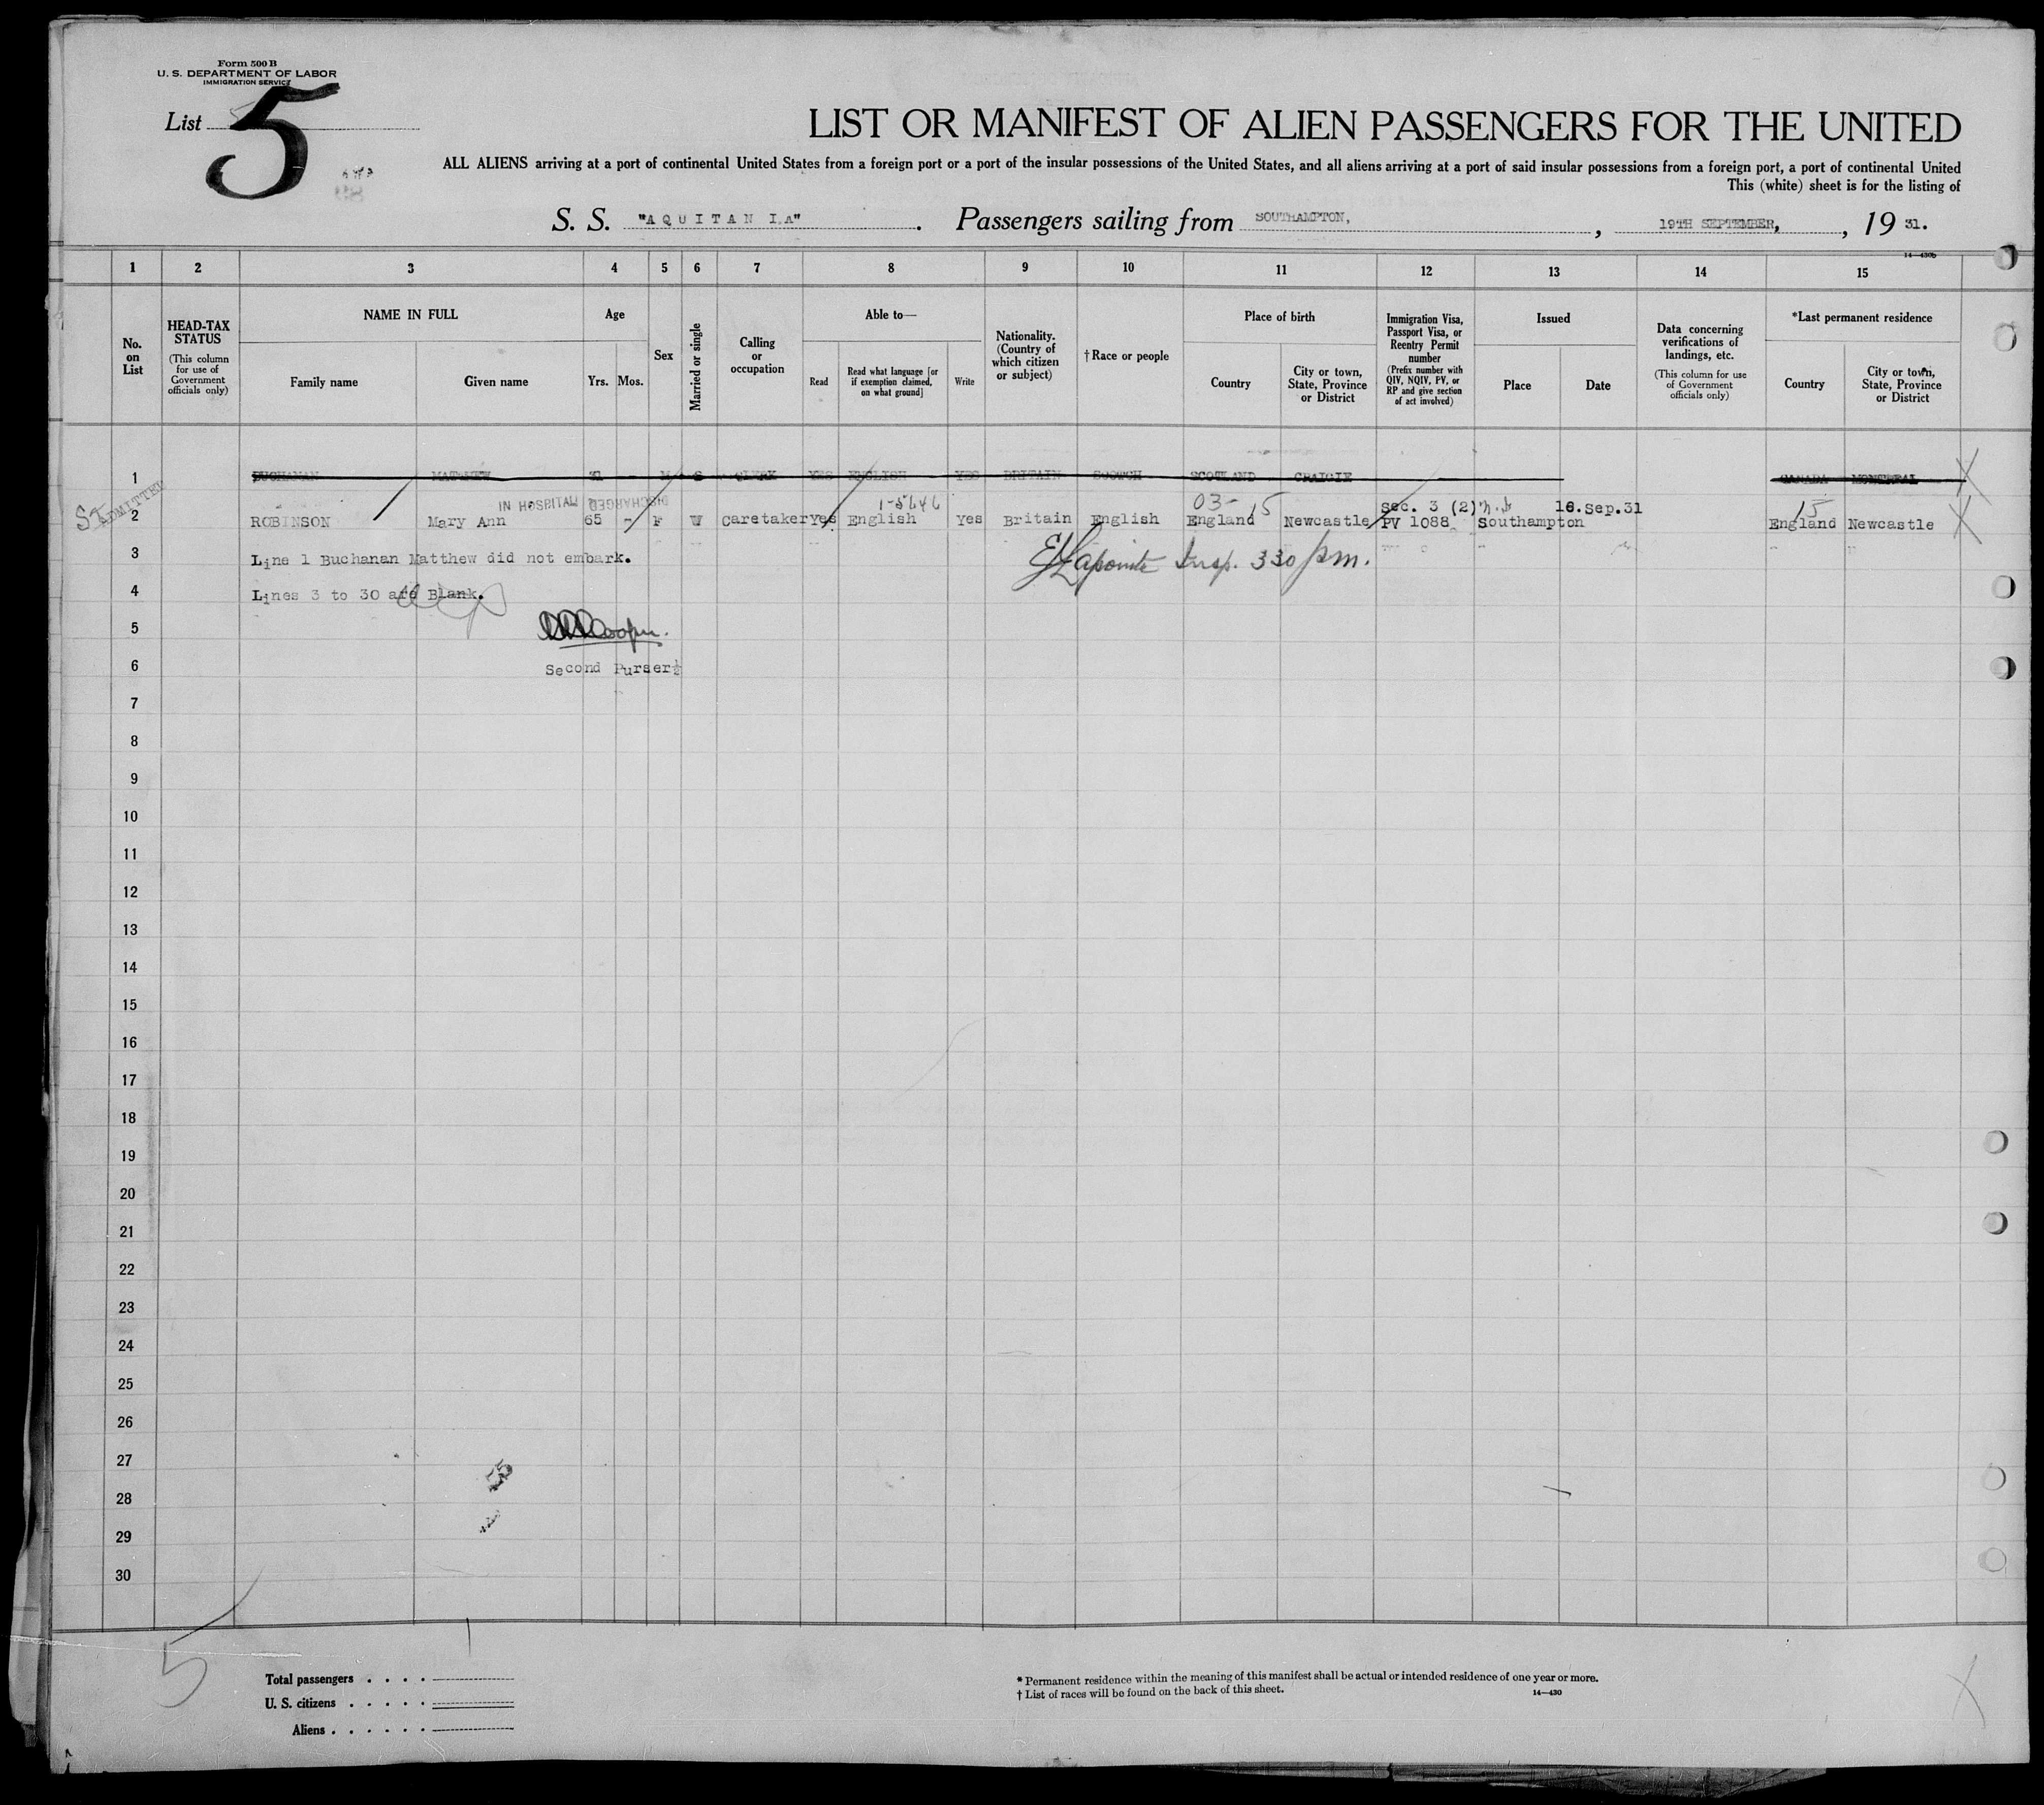 Form 500 B
U. S. DEPARTMENT OF LABOR
IMMIGRATION SERVICE
List 5
LIST OR MANIFEST OF ALIEN PASSENGERS FOR THE UNITED
ALL ALIENS arriving at a port of continental United States from a foreign port or a port of the insular possessions of the United States, and all aliens arriving at a port of said insular possessions from a foreign port, a port of continental United
This (white) sheet is for the listing of
S. S. "AQUITANIA". Passengers sailing from SOUTHAMPTON, , 19TH SEPTEMBER, , 19 31.
14—430b
1 2 3 4 5 6 7 8 9 10 11 12 13 14 15
No. on List
HEAD-TAX STATUS
(This column for use of Government officials only)
NAME IN FULL
Family name
Given name
Age
Yrs. Mos.
Sex
Married or single
Calling or occupation
Able to—
Read
Read what language [or if exemption claimed, on what ground]
Write
Nationality. (Country of which citizen or subject)
†Race or people
Place of birth
Country
City or town, State, Province or District
Immigration Visa, Passport Visa, or Reentry Permit number
(Prefix number with QIV, NQIV, PV, or RP and give section of act involved)
Issued
Place
Date
Data concerning verifications of landings, etc.
(This column for use of Government officials only)
*Last permanent residence
Country
City or town, State, Province or District
1 BUCHANAN MATTHEW 31 - M S CLERK YES ENGLISH YES BRITAIN SCOTCH SCOTLAND CRAIGIE CANADA MONTREAL
ADMITTED
IN HOSPITAL DISCHARGED
03- 15
Sec. 3 (2) 16.Sep.31
15
2 ROBINSON Mary Ann 65 - F W Caretaker Yes English Yes Britain English England Newcastle PV 1088 Southampton England Newcastle
3 Line 1 Buchanan Matthew did not embark.
Lapointe Insp. 330 pm.
4 Lines 3 to 30 are Blank.
5 Cooper.
6 Second Purser
7
8
9
10
11
12
13
14
15
16
17
18
19
20
21
22
23
24
25
26
27
28
29
30
5
Total passengers . . . .
U. S. citizens . . . . .
Aliens . . . . . .
* Permanent residence within the meaning of this manifest shall be actual or intended residence of one year or more.
† List of races will be found on the back of this sheet.
14—430